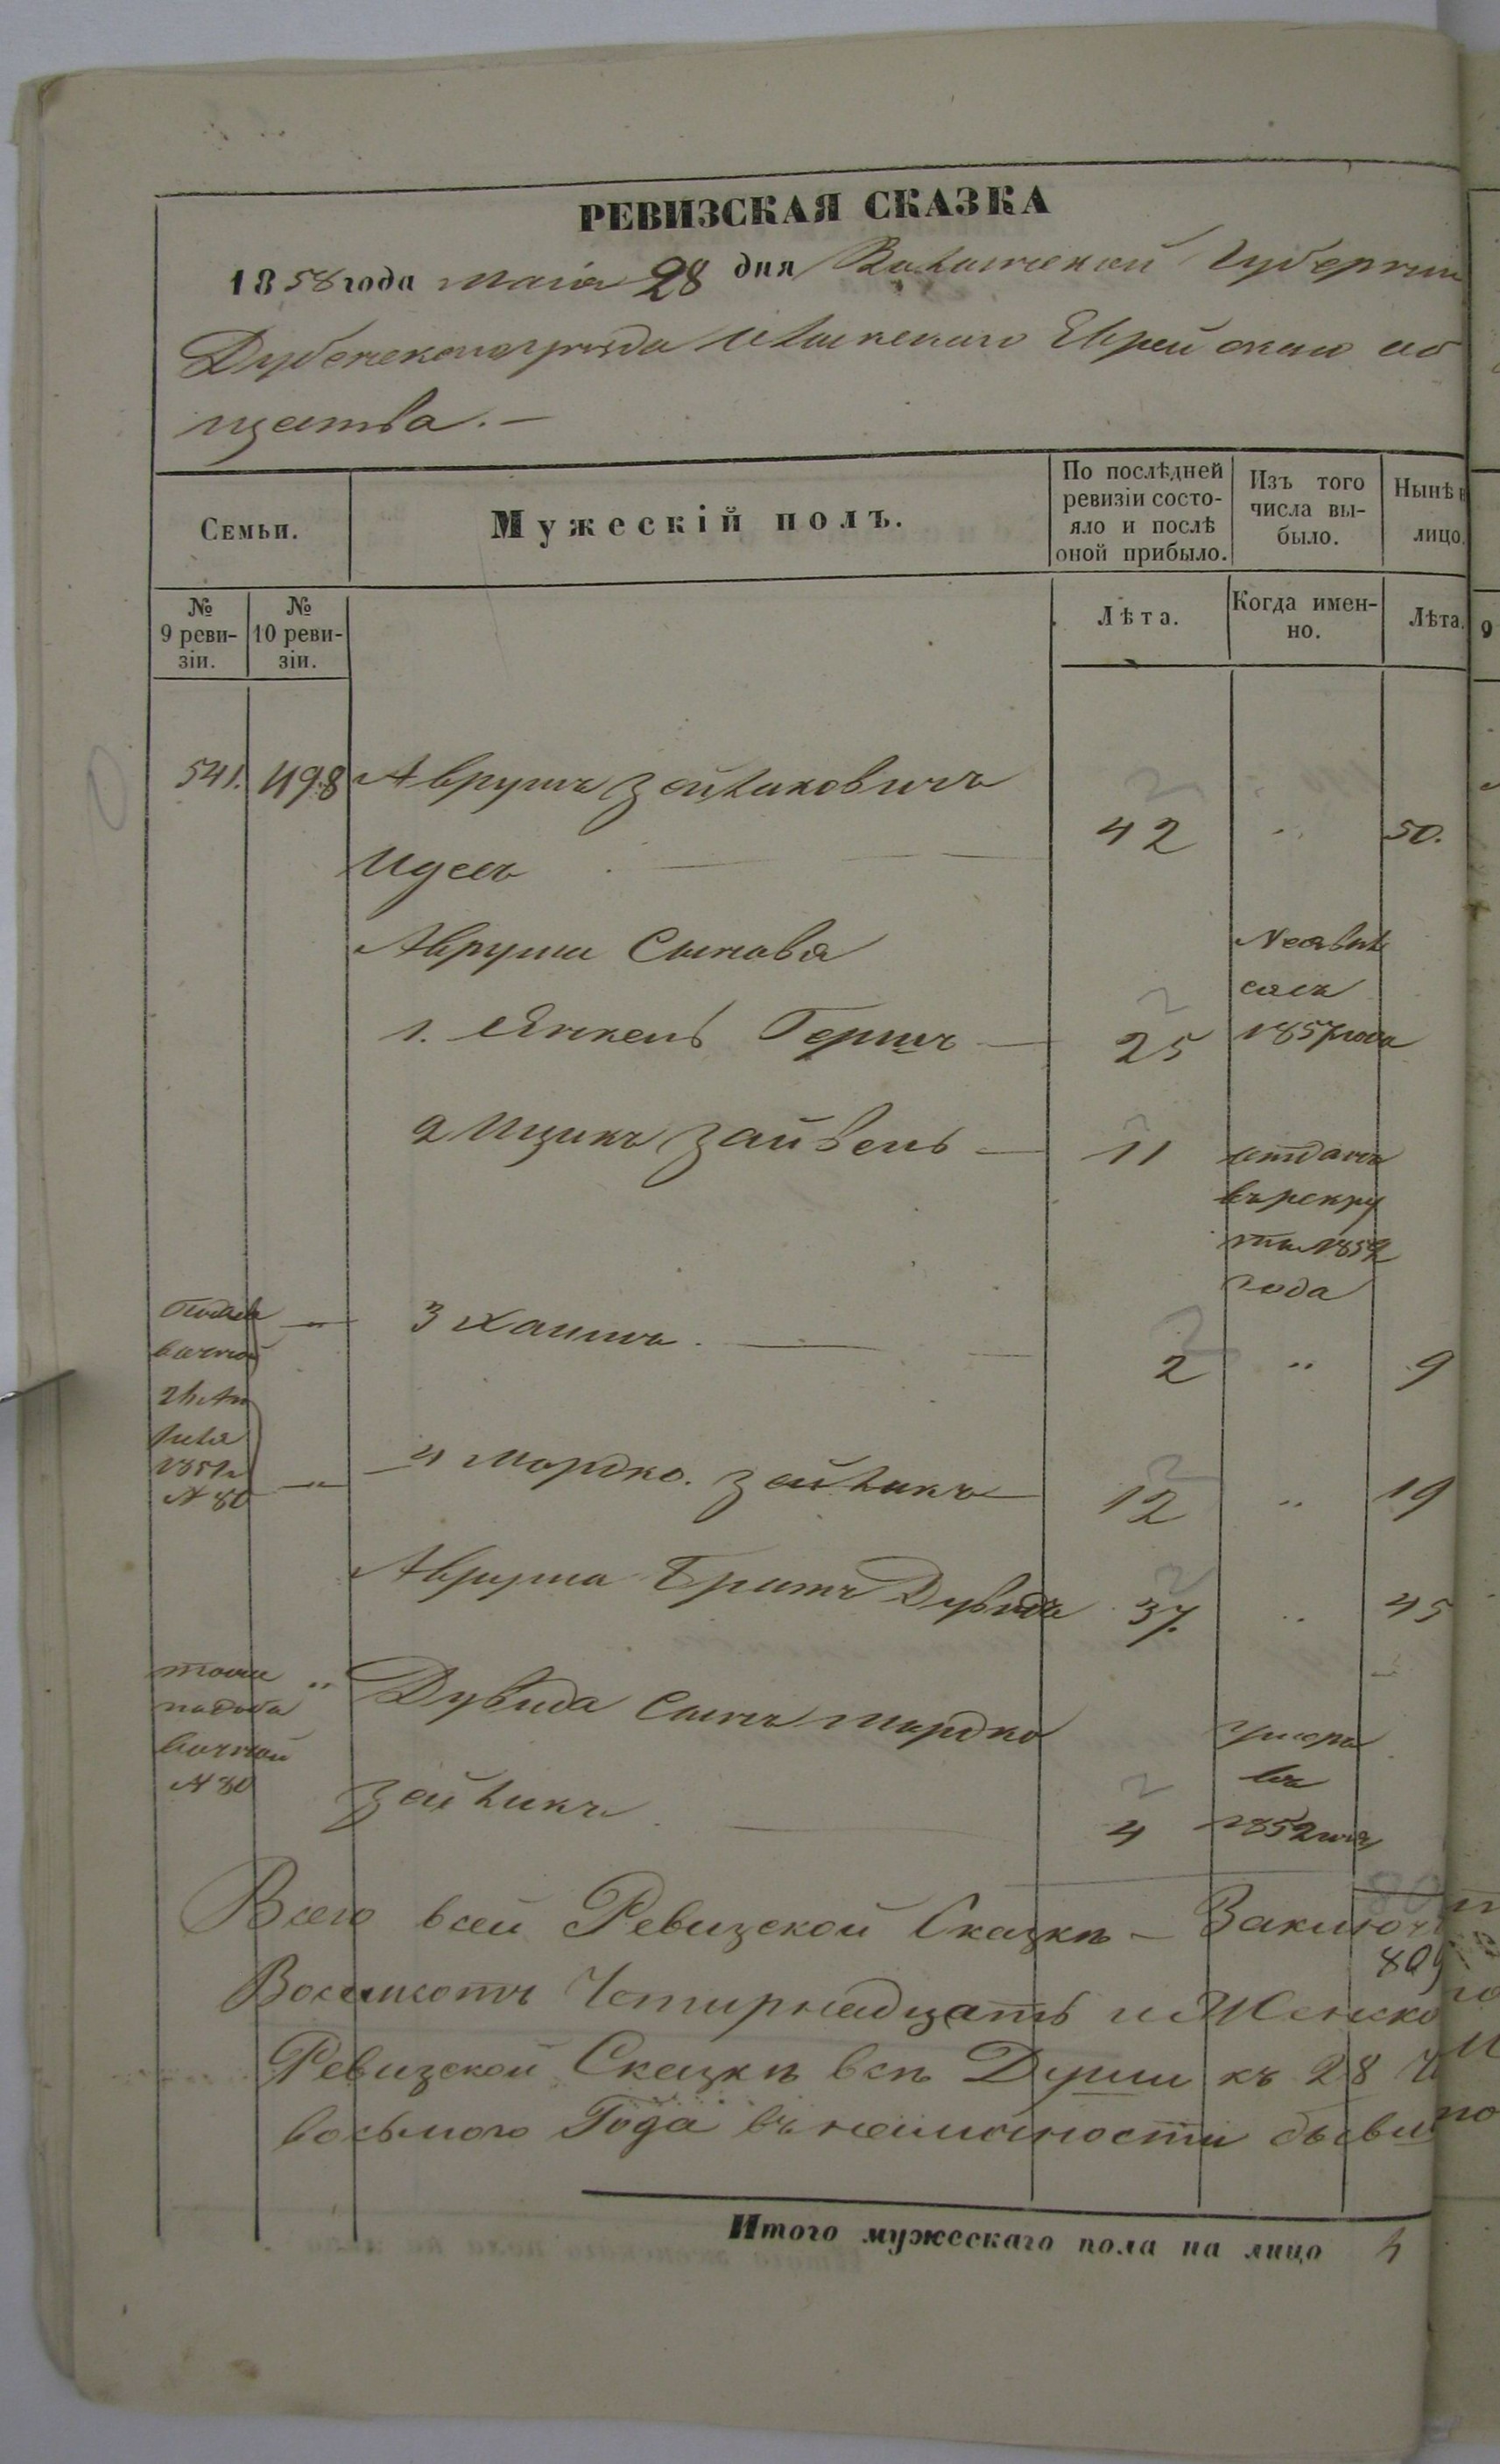 РЕВИЗСКАЯ СКАЗКА
1858 года маія 28 дня Волынской Губерніи
Дубенскаго уезда Еврейскаго об
щества. —
Семьи.
Мужескій полъ.
По послѣдней ревизіи состо-
яло и послѣ оной прибыло.
Изъ того числа вы-
было.
Нынѣ
лицо.
№ 9 реви-
зіи.
№ 10 реви-
зіи.
Лѣта.
Когда имен-
но.
Лѣта.
541. 498 Аврумъ Зейликовичъ
Идесъ 42 " 50.
Аврума Сыновя
1. Янкель Гершъ — 25 Неявил
сясь
1857 года
2 Ицикъ Зайвель — 11 отданъ
въ рекру
ты 1852
года
3 Хаимъ. — 2 " 9
4 Мордко. Зейликъ — 12 " 19
1851
№ 80
Аврума Братъ Дувидъ 37. " 45
Дувида Сынъ Мордко
Зейликъ 4 умеръ
въ
1852
№ 80
Всего всей Ревизской Сказкѣ — Заключ
809
Восимсотъ Четирнадцать и Женско
Ревизской Сказкѣ всѣ Души къ 28
восьмого Года въ наличности бывш
Итого мужескаго пола на лицо 4